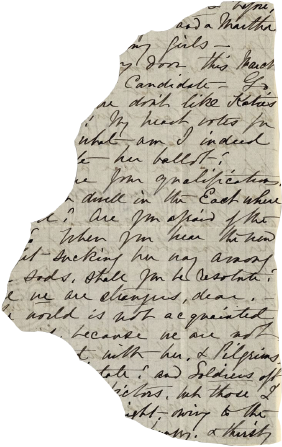 before,
and a Martha
my girls –
door this March
Candidate – Go
we don't like Katies
? My heart votes for
what am I indeed
her ballot?
Your qualifications,
dwell in the East where
? Are you afraid of the
? When you hear the new
sucking her way among
sods, shall you be resolute?
we are strangers, dear,
world is not acquainted
because we are not
with her, & Pilgrims,
? and Soldiers oft
victors, but those I
owing to the
& thirsty